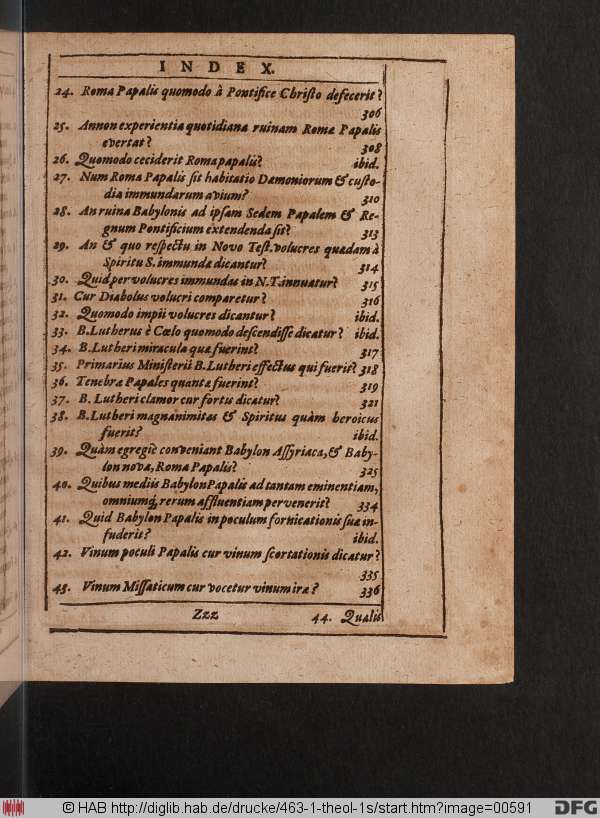 INDEX.
24. Roma Papalis quomodo à Pontifice Christo defecerit?
306
25. Annon experientia quotidiana ruinam Romæ Papalis
evertat? 308
26. Quomodo ceciderit Roma papalis? ibid.
27. Num Roma Papalis sit habitatio Dæmoniorum & custo-
dia immundarum avium? 310
28. An ruina Babylonis ad ipsam Sedem Papalem & Re-
gnum Pontificium extendenda sit? 313
29. An & quo respectu in Novo Test. volucres quædam à
Spiritu S. immundæ dicantur? 314
30. Quid per volucres immundas in N.T. innuatur? 315
31. Cur Diabolus volucri comparetur? 316
32. Quomodo impii volucres dicantur? ibid.
33. B. Lutherus è Cœlo quomodo descendisse dicatur? ibid.
34. B. Lutheri miracula quæ fuerint? 317
35. Primarius Ministerii B. Lutheri effectus qui fuerit? 318
36. Tenebræ Papales quantæ fuerint? 319
37. B. Lutheri clamor cur fortis dicatur? 321
38. B. Lutheri magnanimitas & Spiritus quàm heroicus
fuerit? ibid.
39. Quàm egregiè conveniant Babylon Assyriaca, & Baby-
lon nova, Roma Papalis? 325
40. Quibus mediis Babylon Papalis ad tantam eminentiam,
omniumq; rerum affluentiam pervenerit? 334
41. Quid Babylon Papalis in poculum fornicationis suæ in-
fuderit? ibid.
42. Vinum poculi Papalis cur vinum scortationis dicatur?
335
43. Vinum Missaticum cur vocetur vinum iræ? 336
Zzz 44. Qualis
© HAB http://diglib.hab.de/drucke/463-1-theol-1s/start.htm?image=00591
DFG